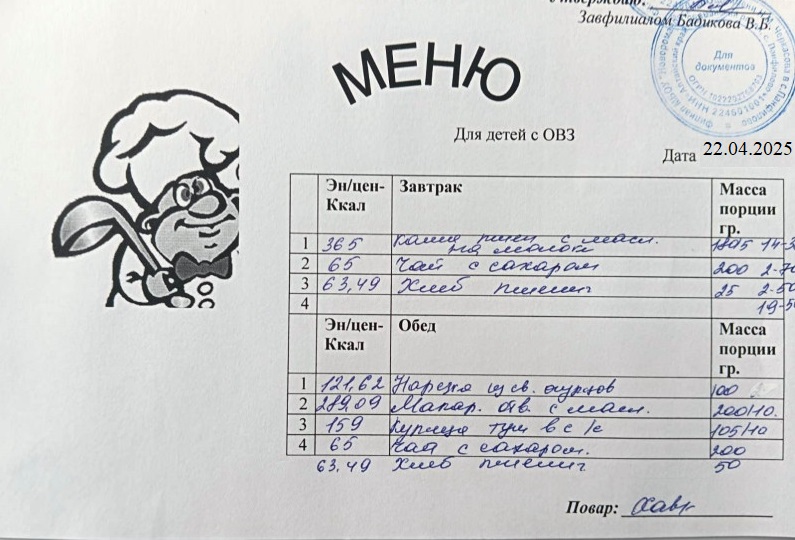 Утверждаю:
Завфилиалом Бадикова В.Б.
Для документов
МЕНЮ
Для детей с ОВЗ
Дата 22.04.2025
Эн/цен-Ккал Завтрак Масса порции гр.
1 365 каша пшен с масл. на молоке
2 65 Чай с сахаром 200
3 63,49 Хлеб пшениг 25
4
Эн/цен-Ккал Обед Масса порции гр.
1 121,62 Нарезка из св. огурцов 100
2 289,09 Макар. отв. с масл. 200/10.
3 159 Курица туш в с/с 105/10
4 65 Чай с сахаром. 200
63,49 Хлеб пшениг 50
Повар: